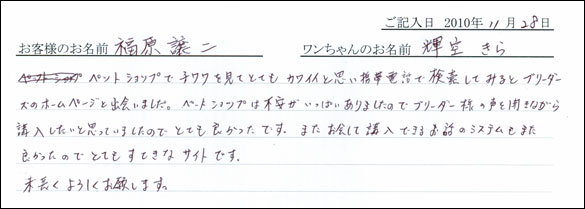 ご記入日 2010年 11月 28日
お客様のお名前 福原 譲二 ワンちゃんのお名前 輝空 きら
ペットショップで チワワを見てとても カワイイと思い携帯電話で検索してみると ブリーダー
犬のホームページと出会いました。ペットショップは不安がいっぱいありましたのでブリーダー様の声を聞きながら
購入したいと思っていましたのでとても良かったです。また お会して購入できるお話のシステムもまた
良かったのでとてもすてきなサイトです。
末長くよろしくお願します。